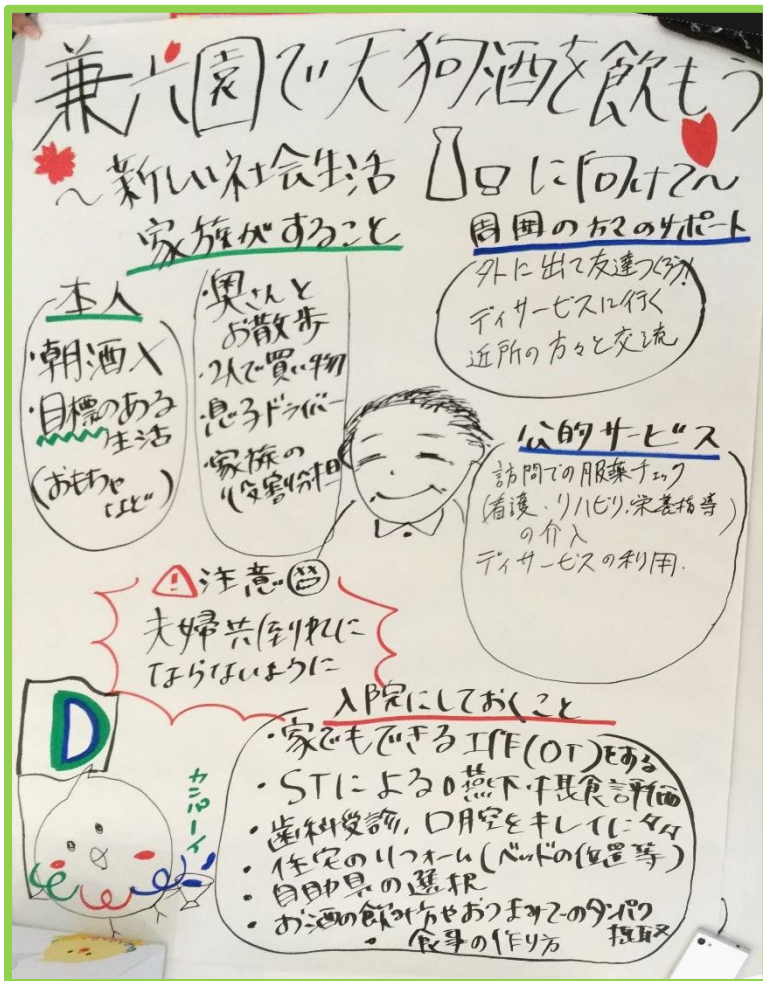 兼六園で天狗酒を飲もう
～新しい社会生活 に向けて～
家族がすること
本人
・朝酒×
・目標のある
生活
(おもちゃ
など)
・奥さんと
お散歩
・2人で買い物
・息子ドライバー
・家族の
役割分担
周囲の方々のサポート
外に出て友達つくろう!
デイサービスに行く
近所の方々と交流
公的サービス
訪問での服薬チェック
(看護・リハビリ・栄養指導)
の介入
デイサービスの利用.
注意
夫婦共倒れに
ならないように
D
カンパーイ
入院にしておくこと
・家でもできる工作(OT)をする
・STによる嚥下・摂食評価
・歯科受診、口腔をキレイに
・住宅のリフォーム(ベッドの位置等)
・自助具の選択
・お酒の飲み方やおつまみでのタンパク
摂取
・食事の作り方